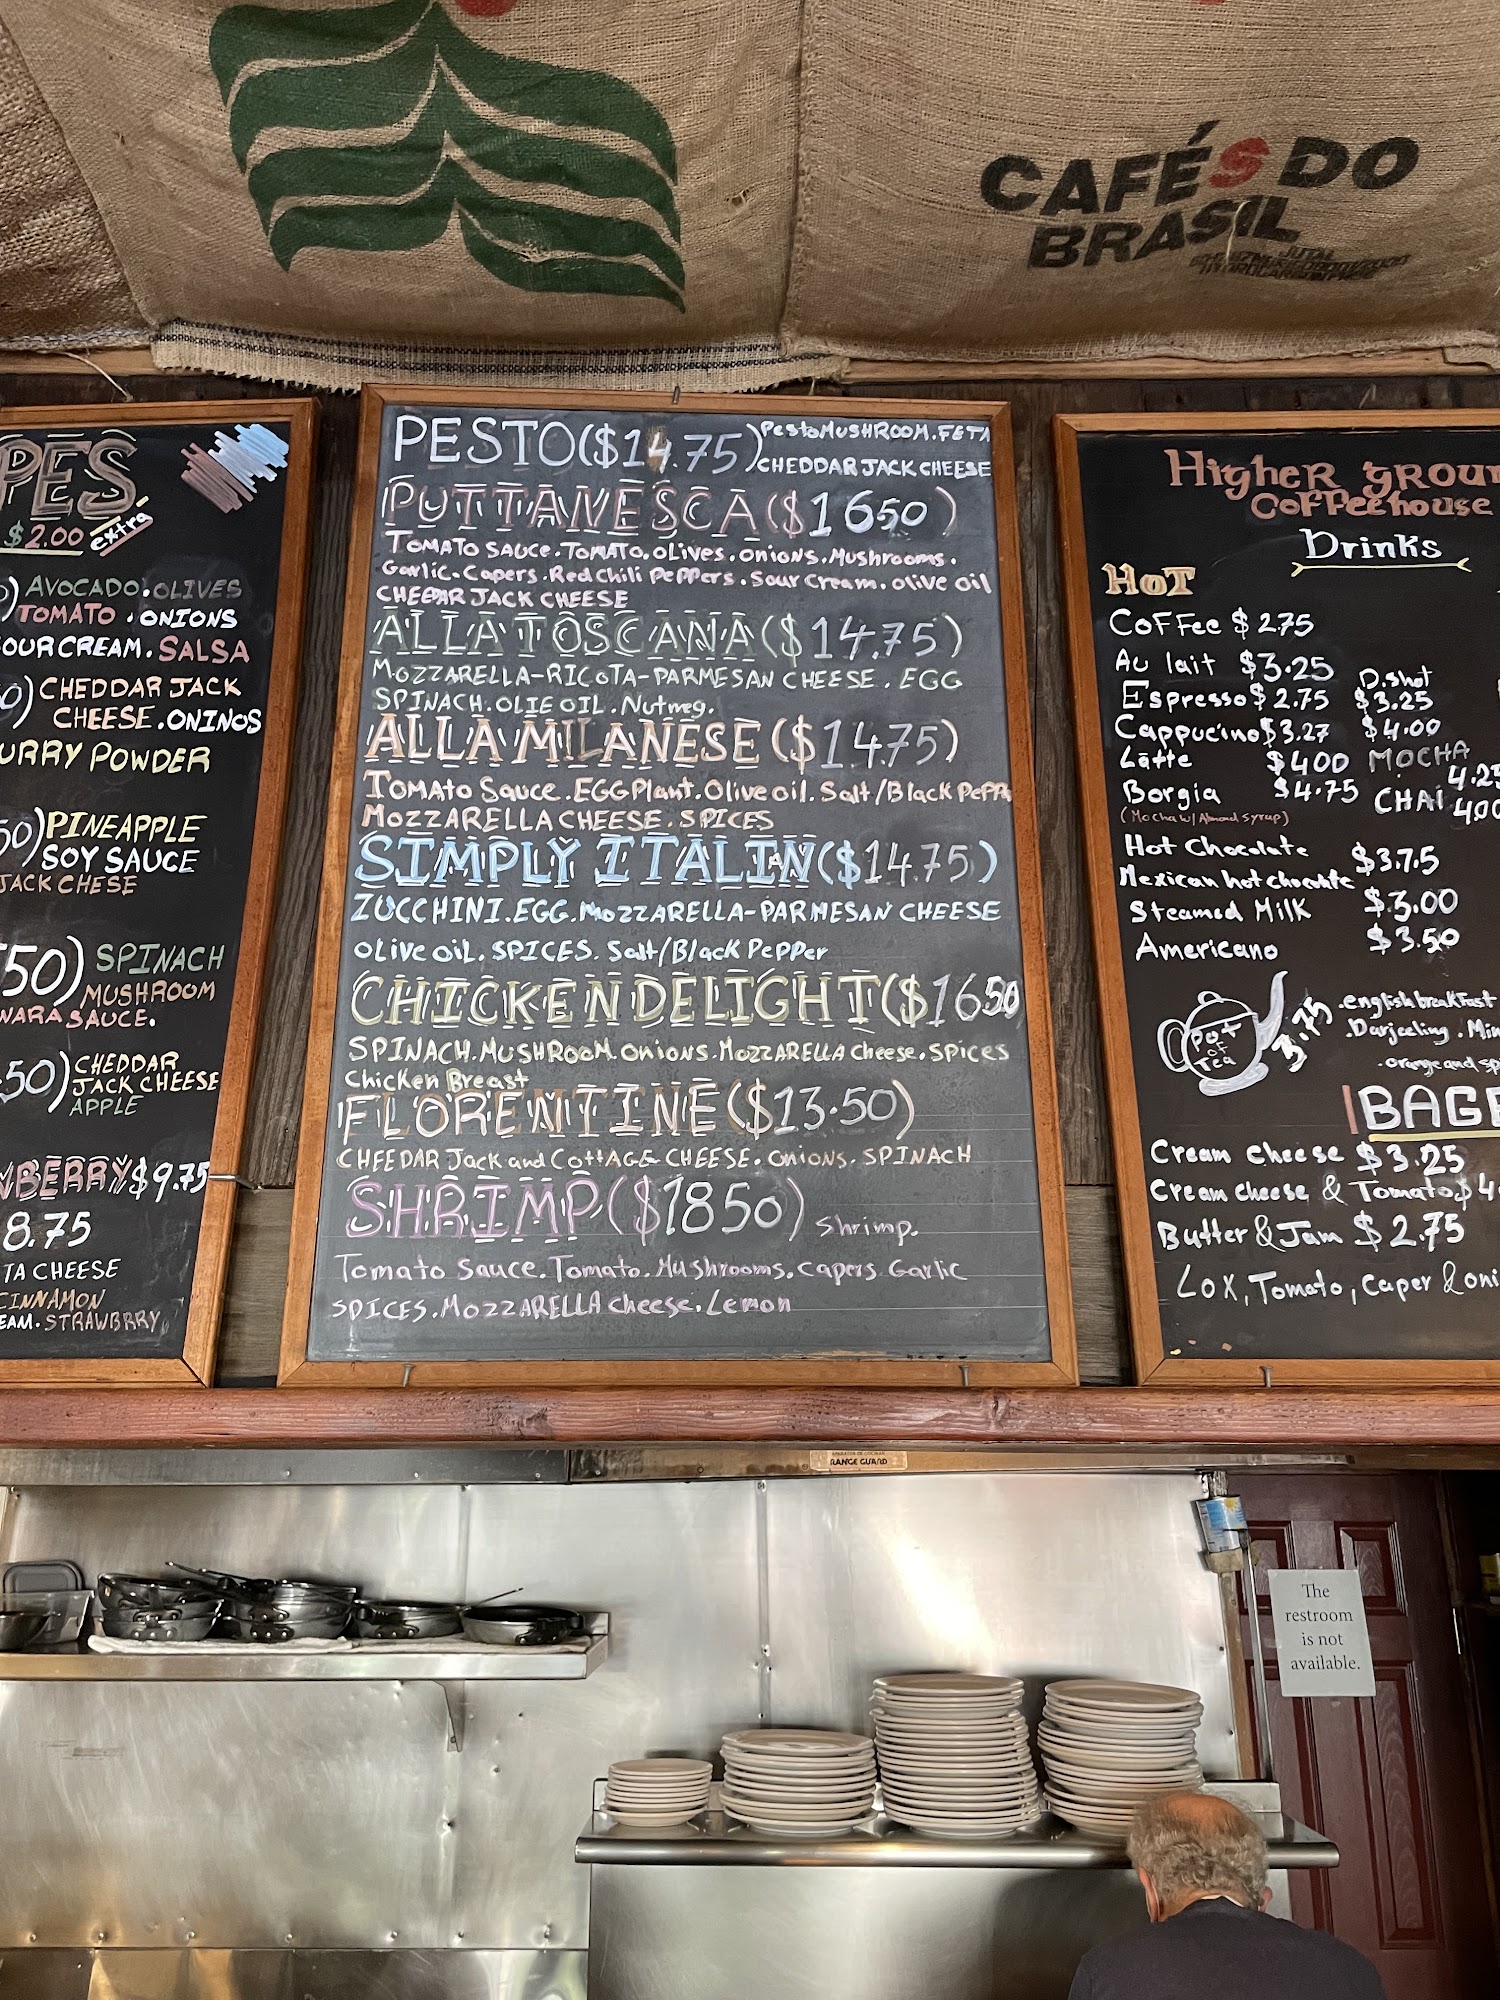 CAFÉS DO
BRASIL
PES
$2.00 extra
AVOCADO.OLIVES
TOMATO.ONIONS
OUR CREAM.SALSA
0) CHEDDAR JACK
CHEESE.ONINOS
URRY POWDER
50) PINEAPPLE
SOY SAUCE
JACK CHESE
50) SPINACH
MUSHROOM
NARA SAUCE.
.50) CHEDDAR
JACK CHEESE
APPLE
WBERRY $9.75
8.75
TA CHEESE
CINNAMON
EAM.STRAWBRRY
PESTO ($14.75) Pesto MUSHROOM.FETA
CHEDDAR JACK CHEESE
PUTTANESCA ($1650)
TOMATO SAUCE.TOMATO.OLIVES.ONIONS.MUSHROOMS.
Garlic.Capers.Red Chili Peppers.Sour Cream.olive oil
CHEDAR JACK CHEESE
ALLA TOSCANA ($14.75)
MOZZARELLA-RICOTA-PARMESAN CHEESE.EGG
SPINACH.OLIE OIL.Nutmeg.
ALLA MILANESE ($1475)
TOMATO SAUCE.EGGPlant.Olive oil.Salt/Black PePPR
MOZZARELLA CHEESE.SPICES
SIMPLY ITALIAN ($14.75)
ZUCCHINI.EGG.MOZZARELLA-PARMESAN CHEESE
OLIVE OIL.SPICES.Salt/Black PePPer
CHICKEN DELIGHT ($1650
SPINACH.MUSHROOM.Onions.MOZZARELLA Cheese.SPices
Chicken Breast
FLORENTINE ($13.50)
CHEEDAR Jack and CottAGE CHEESE.Onions.SPINACH
SHRIMP ($1850) Shrimp.
Tomato Sauce.Tomato.Mushrooms.Capers Garlic
SPICES.MOZZARELLA Cheese.Lemon
Higher GROUN
CoFFeehouse
Drinks
HOT
CoFFee $275
Au lait $3.25
D.shot
Espresso $2.75 $3.25
Cappucino $3.27 $4.00
Latte $400 MOCHA 4.25
Borgia $4.75 CHAI 400
(Mocha w/ Almond syrup)
Hot Chocolate $3.75
Mexican hot chocolate
Steamed Milk $3.00
Americano $3.50
Pot OF Tea 3.75
.english breakFast
.Darjeeling.Min
.orange and sp
BAGE
Cream cheese $3.25
Cream cheese & Tomato $4
Butter & Jam $2.75
LOX, Tomato, Caper & oni
RANGE GUARD
The
restroom
is not
available.